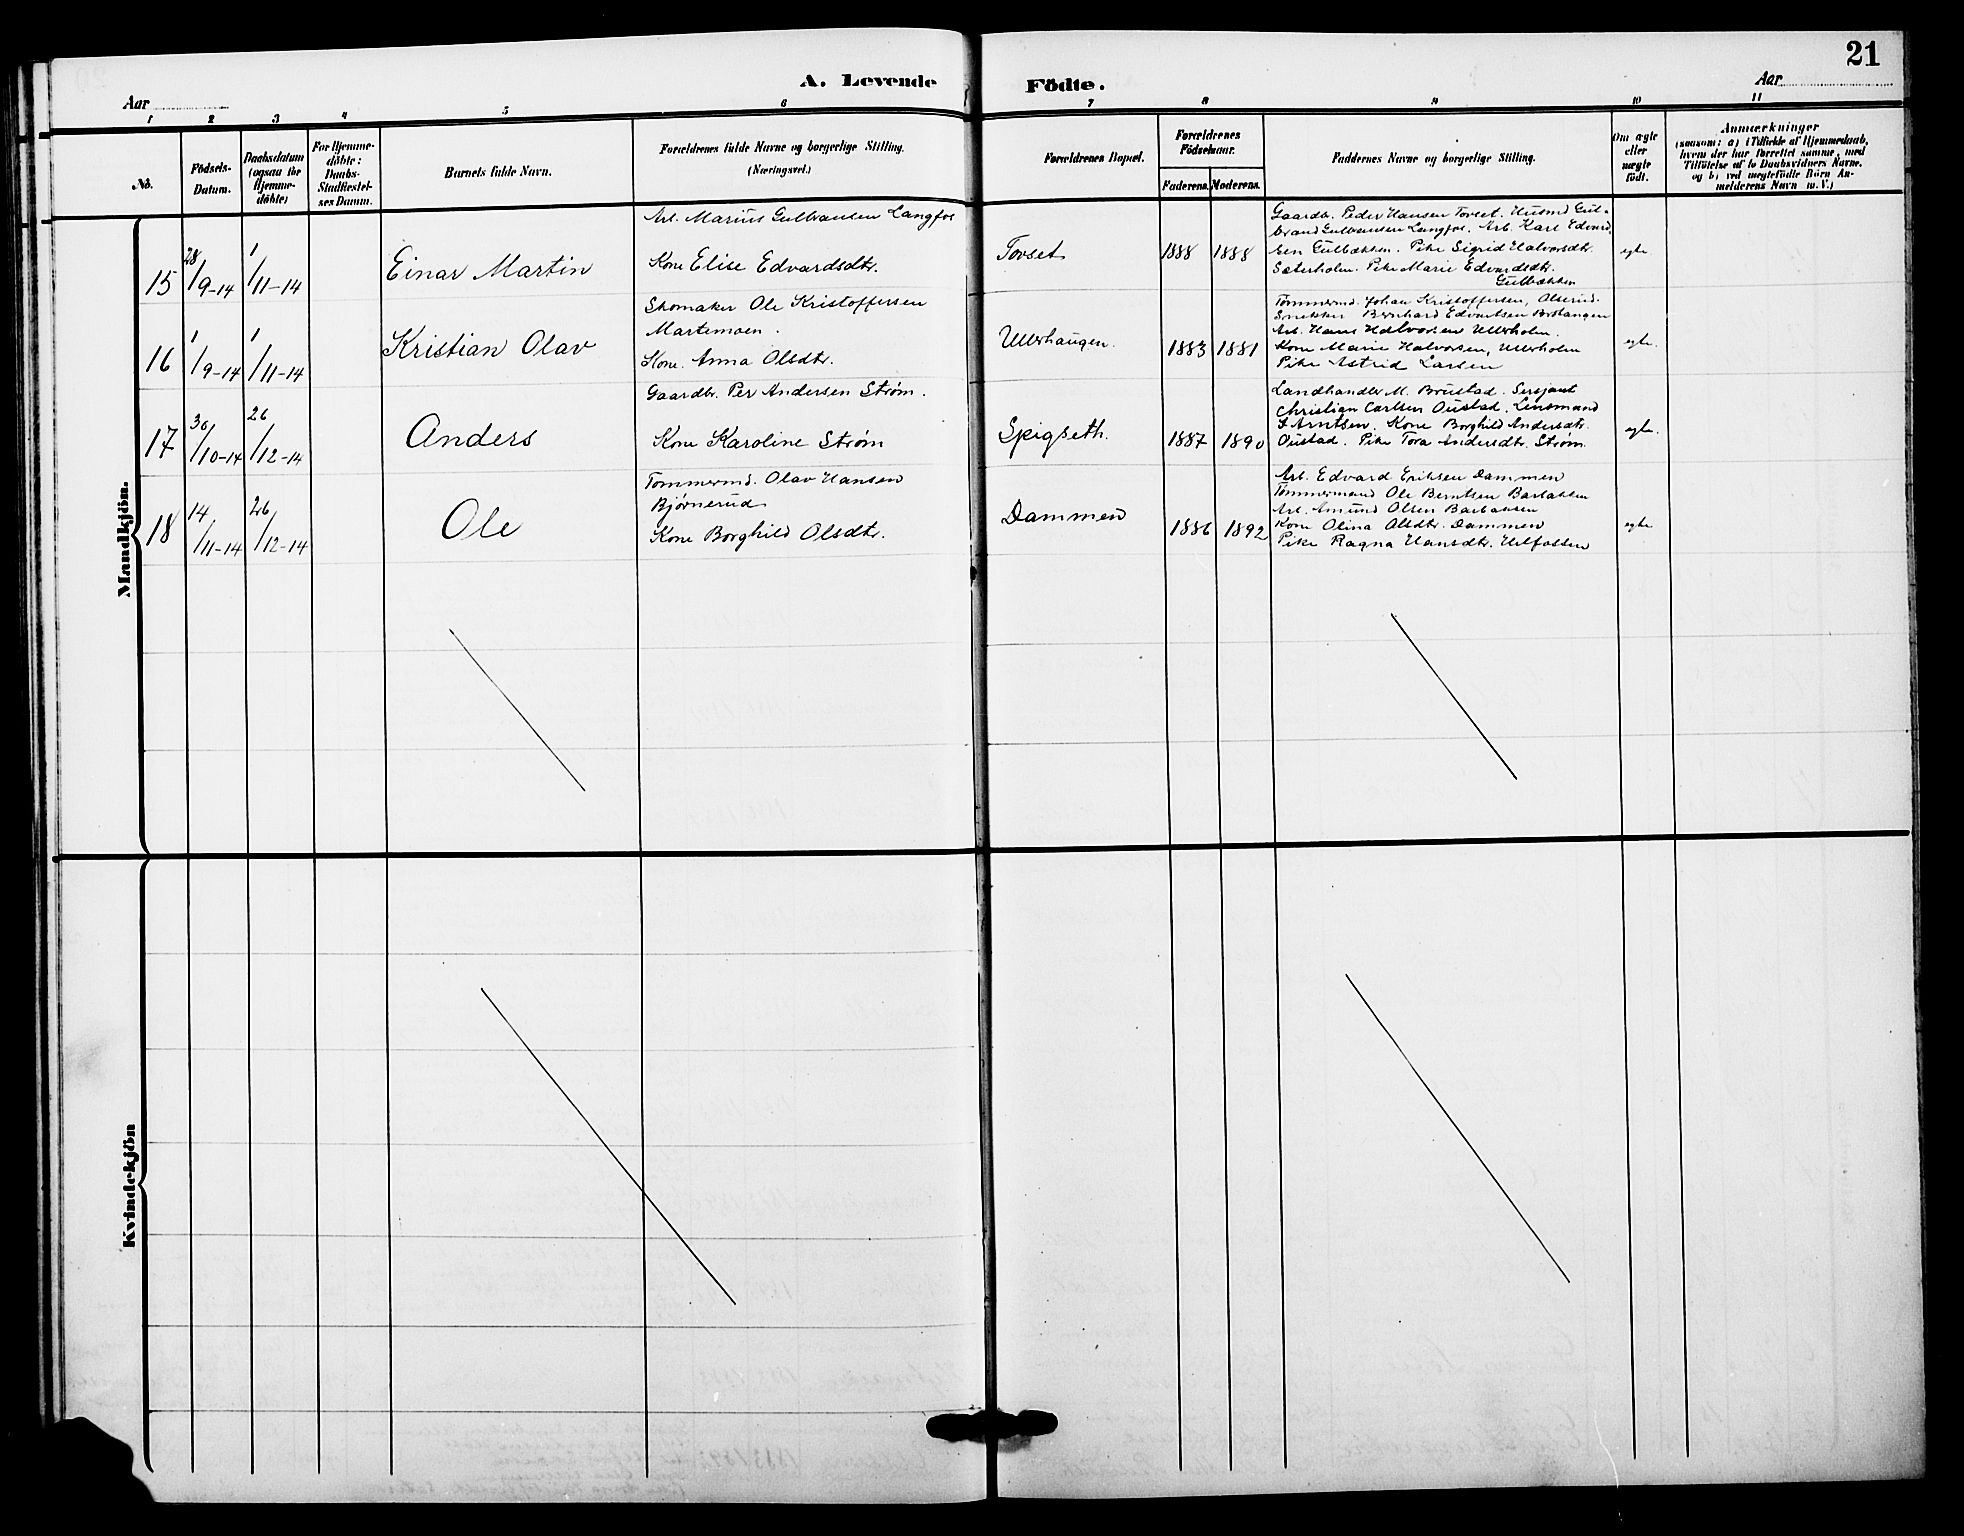 21
A. Levende Födte.
Aar
Aar
1 2 3 4 5 6 7 8 9 10 11
No.
Födsels-
Datum.
Daabsdatum
(ogsaa for
Hjemme-
døbte)
For Hjemme-
døbte:
Daabs-
Stadfæstel-
ses Datum.
Barnets fulde Navn.
Forældrenes fulde Navne og borgerlige Stilling.
(Næringsvei.)
Forældrenes Bopæl.
Forældrenes
Födselsaar.
Faderens. Moderens.
Faddernes Navne og borgerlige Stilling.
Om ægte
eller
uægte
födt.
Anmærkninger
(saasom: a) i Tilfælde af Hjemmedaab,
hvem der har forrettet samme, med
Tilföielse af to Daabsvidners Navne,
og b) ved uægtefödte Börn An-
melderens Navn m. V.)
Mandkjön.
15
28/9-14
1/11-14
Einar Martin
Arb. Marius Gulbransen Langfos
Kone Elise Edvardsdtr.
Torset
1888
1888
Gaardbr. Peder Hansen Torset. Husmd Gul-
brand Gulbransen Langfos. Arb. Karl Edvard
sen Gulbækken. Pike Sigrid Halvorsdtr.
Sæterholm. Pike Marie Edvardsdtr.
Gulbækken
egte
16
1/9-14
1/11-14
Kristian Olav
Skomaker Ole Kristoffersen
Martemoen.
Kone. Anna Olsdtr.
Ullerhaugen.
1883
1881
Tømmermd. Johan Kristoffersen,
Snekker Bernhard Edvartsen
Arb. Hans Halvorsen Ullerholm.
Kone Marie Halvorsen, Ullerholm
Pike Astrid Larsen
egte.
17
30/10-14
26/12-14
Anders
Gaardbr. Per Andersen Strøm.
Kone Karoline Strøm
Spigseth.
1887
1890
Landhandler M. Brustad. Sersjant
Christian Carlsen Oustad. Lensmand
Arntsen. Kone Borghild Andersdtr.
Oustad. Pike Tora Andersdtr. Strøm.
egte.
18
14/11-14
26/12-14
Ole
Tømmermd. Olav Hansen
Bjørnerud
Kone Borghild Olsdtr.
Dammen
1886
1892
Arb. Edvard Eriksen Dammen
Tømmermand Ole Berntsen
Arb. Amund Olsen
Kone Olina Olsdtr. Dammen
Pike Ragna Hansdtr. Ulfossen
egte
Kvindekjön